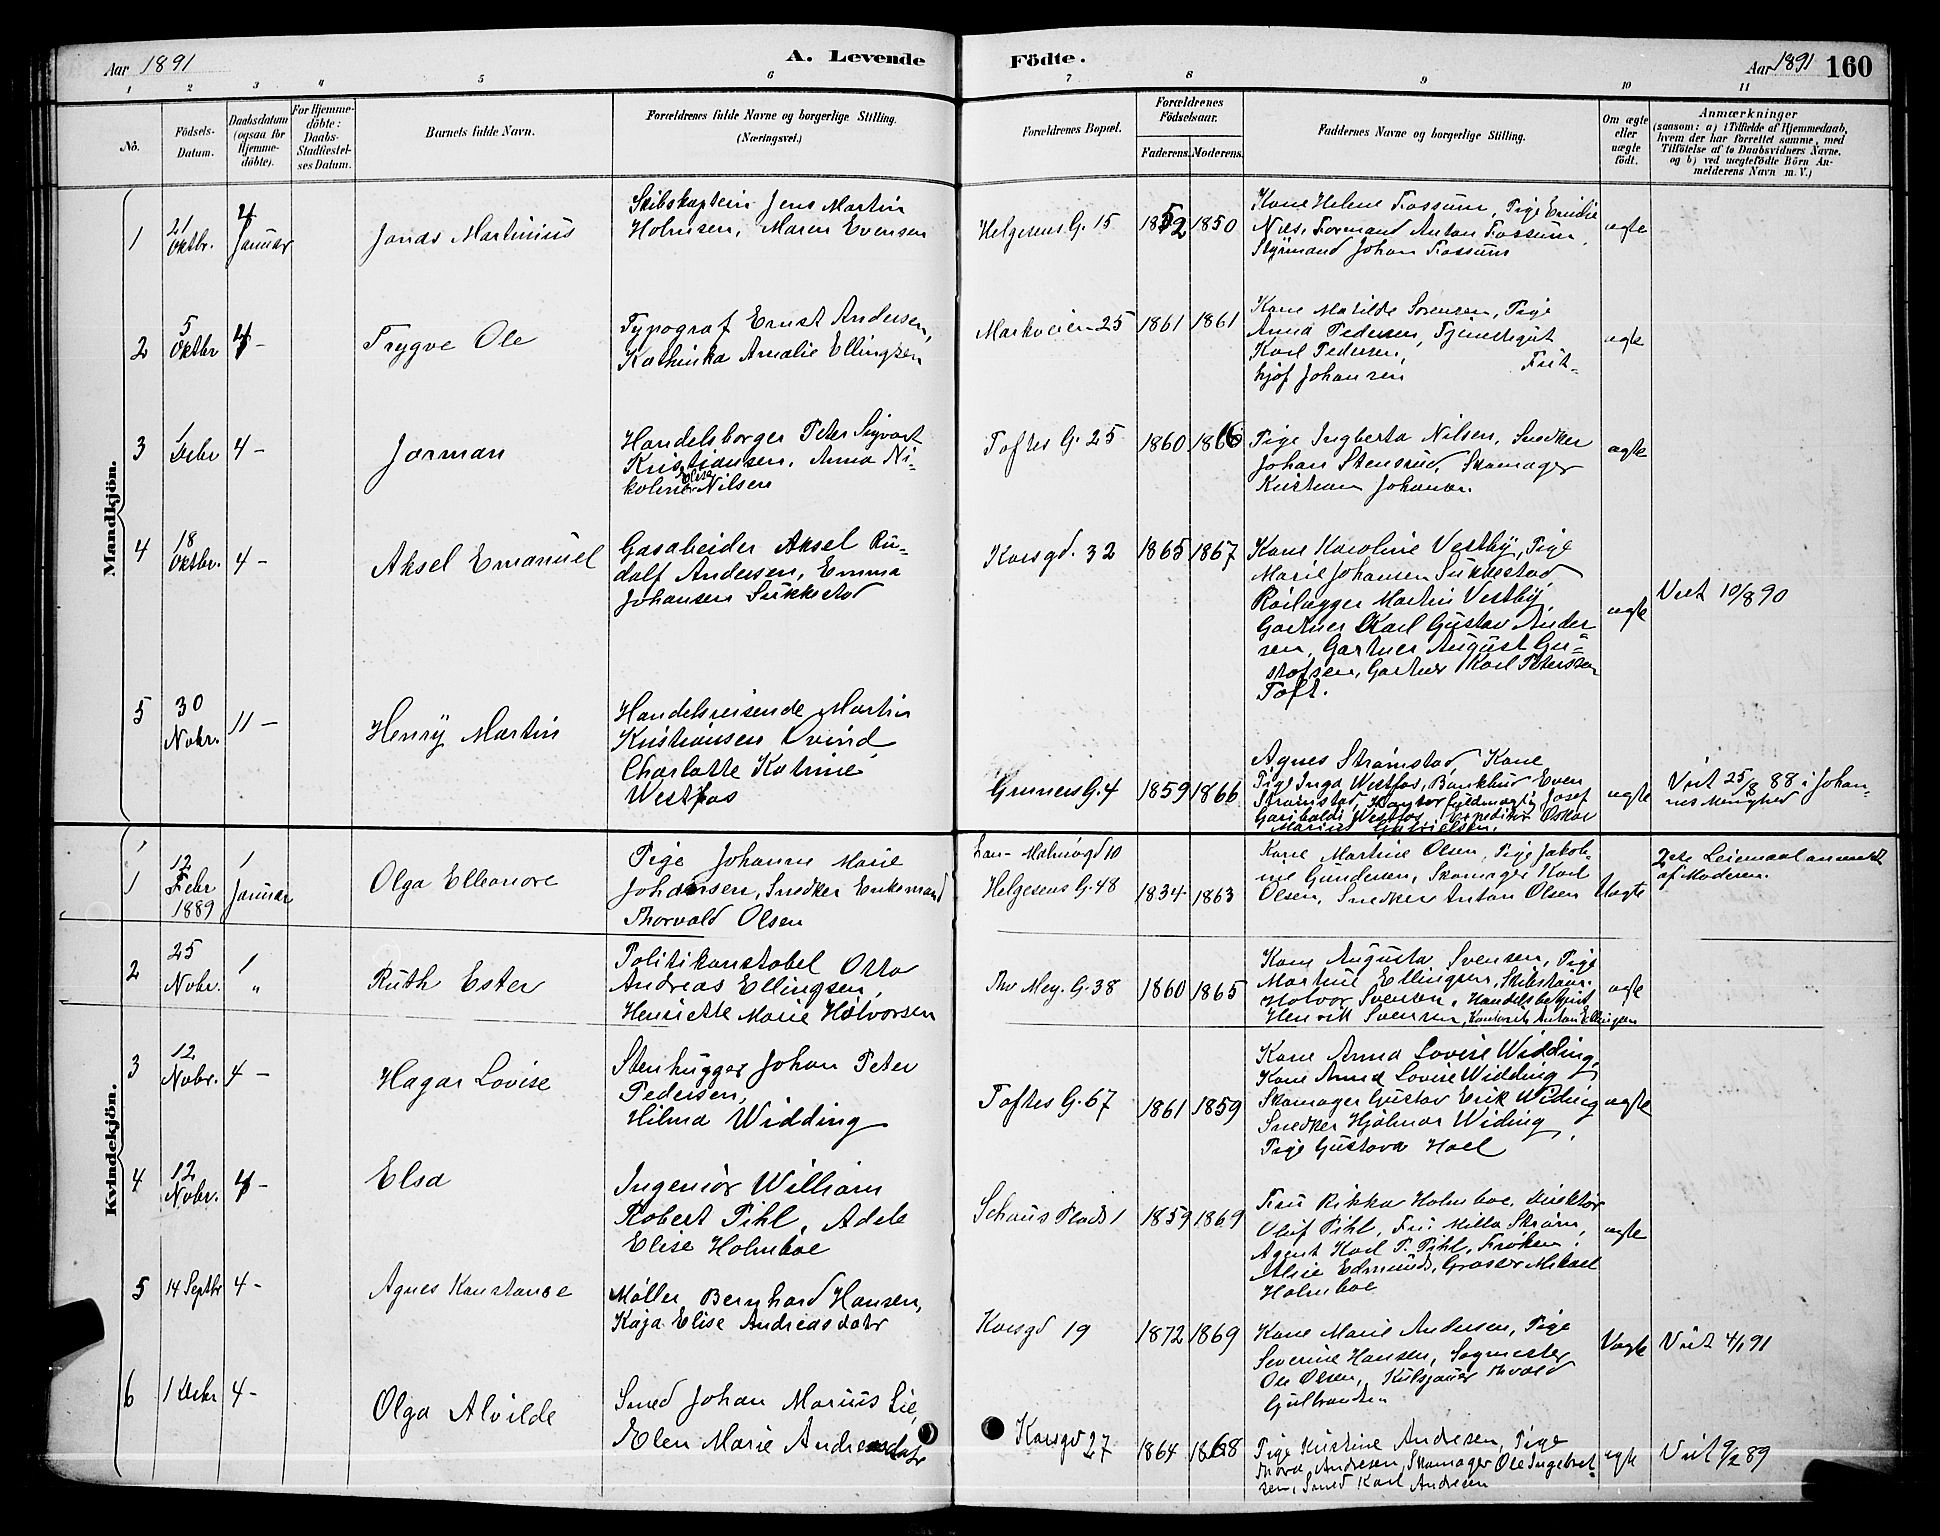 Aar 1891
A. Levende
Födte.
Aar 1891
160
1 2 3 4 5 6 7 8 9 10 11
No.
Födsels-
Datum.
Daabsdatum
(ogsaa for
Hjemme-
döbte).
For Hjemme-
döbte:
Daabs-
Stadfæstel-
ses Datum.
Barnets fulde Navn.
Forældrenes fulde Navne og borgerlige Stilling.
(Næringsvei.)
Forældrenes Bopæl.
Forældrenes
Födselsaar.
Faderens. Moderens.
Faddernes Navne og borgerlig Stilling.
Om ægte
eller
uægte
födt.
Anmærkninger
(saasom: a) i Tilfælde af Hjemmedaab,
hvem der har forrettet samme, med
Tilföielse af to Daabsvidners Navne,
og b) ved uægtefödte Börn An-
melderens Navn m. V.)
Mandkjön.
1
21
Oktbr.
4
Januar
Jonas Martinius
Skibskaptein Jens Martin
Holmsen, Maren Evensen
Helgesens G. 15
1852
1850
Kone Helene Fossum, Pige Emilie
Nies, Formand Anton Fossum,
Styrmand Johan Fossum
ægte
2
5
Oktbr
4 -
Trygve Ole
Typograf Ernst Andersen,
Kathinka Amalie Ellingsen
Markveien 25
1861
1861
Kone Matilde Sorensen, Pige
Anna Pedersen, Tjenestegut
Karl Pedersen, Frit-
hjof Johansen
ægte
3
1
Decbr
4 -
Jorman
Handelsborger Peter Sigvart
Kristiansen, Anna Ni-
koline Elise Nilsen
Toftes G. 25
1860
1866
Pige Ingberta Nilsen, Snedker
Johan Stensrud, Skomager
Kristian Johansen.
ægte
4
18
Oktbr.
4 -
Aksel Emanuel
Gasarbeider Aksel Ru-
dolf Andersen, Emma
Johansen Sukkestad
Korsgd. 32
1865
1867
Kone Karoline Vestby, Pige
Marie Johansen Sukkestad
Rørlægger Martin Vestby,
Gartner Karl Gustav Ander
sen, Gartner August Gu-
stafsen, Gartner Karl Peterssen
Toft.
ægte
Viet 10/8 90
5
30
Nobr.
11 -
Henry Martin
Handelsreisende Martin
Kristiansen Qvind,
Charlotte Katrine
Westfos
Gruners G. 4
1859
1866
Agnes Strømstad Kone
Pige Inga Westfos, Bankbud Even
Strømstad, Kontorfuldmægtig Josef
Garibaldi Westfos, Expeditør Oskar
Marius Gabrielsen.
ægte
Viet 25/8 88 i Johan-
nes Menighed
Kvindekjön.
1
12
Febr
1889
1
Januar
Olga Elleonore
Pige Johanne Marie
Johansen, Snedker Enkemand
Thorvald Olsen
Malmøgd 10
Helgesens G. 48
1834
1863
Kone Martine Olsen, Pige Jakob-
ine Gundersen, Skomager Karl
Olsen, Snedker Anton Olsen
Uægte
2det Leiermaal anmeldt
af Moderen.
2
25
Nobr.
1
"
Ruth Ester
Politikonstabel Otto
Andreas Ellingsen,
Henriette Marie Halvorsen
Thv Mey. G. 38
1860
1865
Kone Augusta Svensen, Pige
Martine Ellingsen, Skibstøm.
Halvor Svensen, Handelsbetjent
Henrik Svensen, Anton Ellingsen
ægte
3
12
Nobr.
4 -
Hagar Lovise
Stenhugger Johan Peter
Pedersen,
Hilma Widding
Toftes G. 67
1861
1859
Kone Anna Lovise Widding,
Kone Anna Lovise Widding,
Skomager Gustav Erik Widing
Snedker Hjalmar Widing,
Pige Gustava Hoel
ægte
4
12
Nobr.
4 -
Elsa
Ingeniør William
Robert Pihl, Adele
Elise Holmboe
Schous Plads 1
1859
1869
Fru Rikka Holmboe, Direktør
Oluf Pihl, Fru Milla Skram,
Agent Karl P. Pihl, Frøken
Alise Edmunds, Grosser Mikael
Holmboe
ægte
5
14 Septbr
4 -
Agnes Konstance
Møller Bernhard Hansen,
Kaja Elise Andreasdatr
Korsgd 19
1872
1869
Kone Marie Andersen, Pige
Severine Hansen, Sagmester
Ole Olsen, Kulsjouer Thvald
Gulbrandsen
Uægte
Viet 4/1 91
6
1 Decbr
4 -
Olga Alvilde
Smed Johan Marius Lie,
Elen Marie Andreasdatr
Korsgd 27
1864
1868
Pige Kristine Andresen, Pige
Thora Andresen, Skomager Ole Ingebret-
sen, Smed Karl Andresen
ægte
Viet 9/2 89